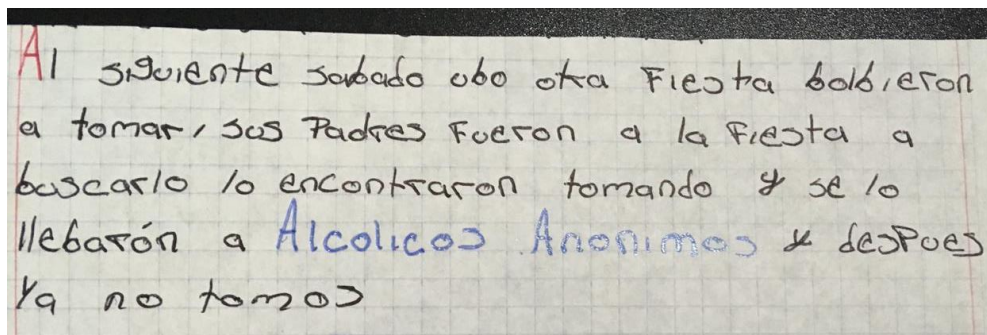 Al siguiente sabado ubo otra Fiesta bolbieron
a tomar, sus Padres Fueron a la Fiesta a
buscarlo lo encontraron tomando y se lo
llebarón a Alcolicos Anonimos y desPues
Ya no tomos